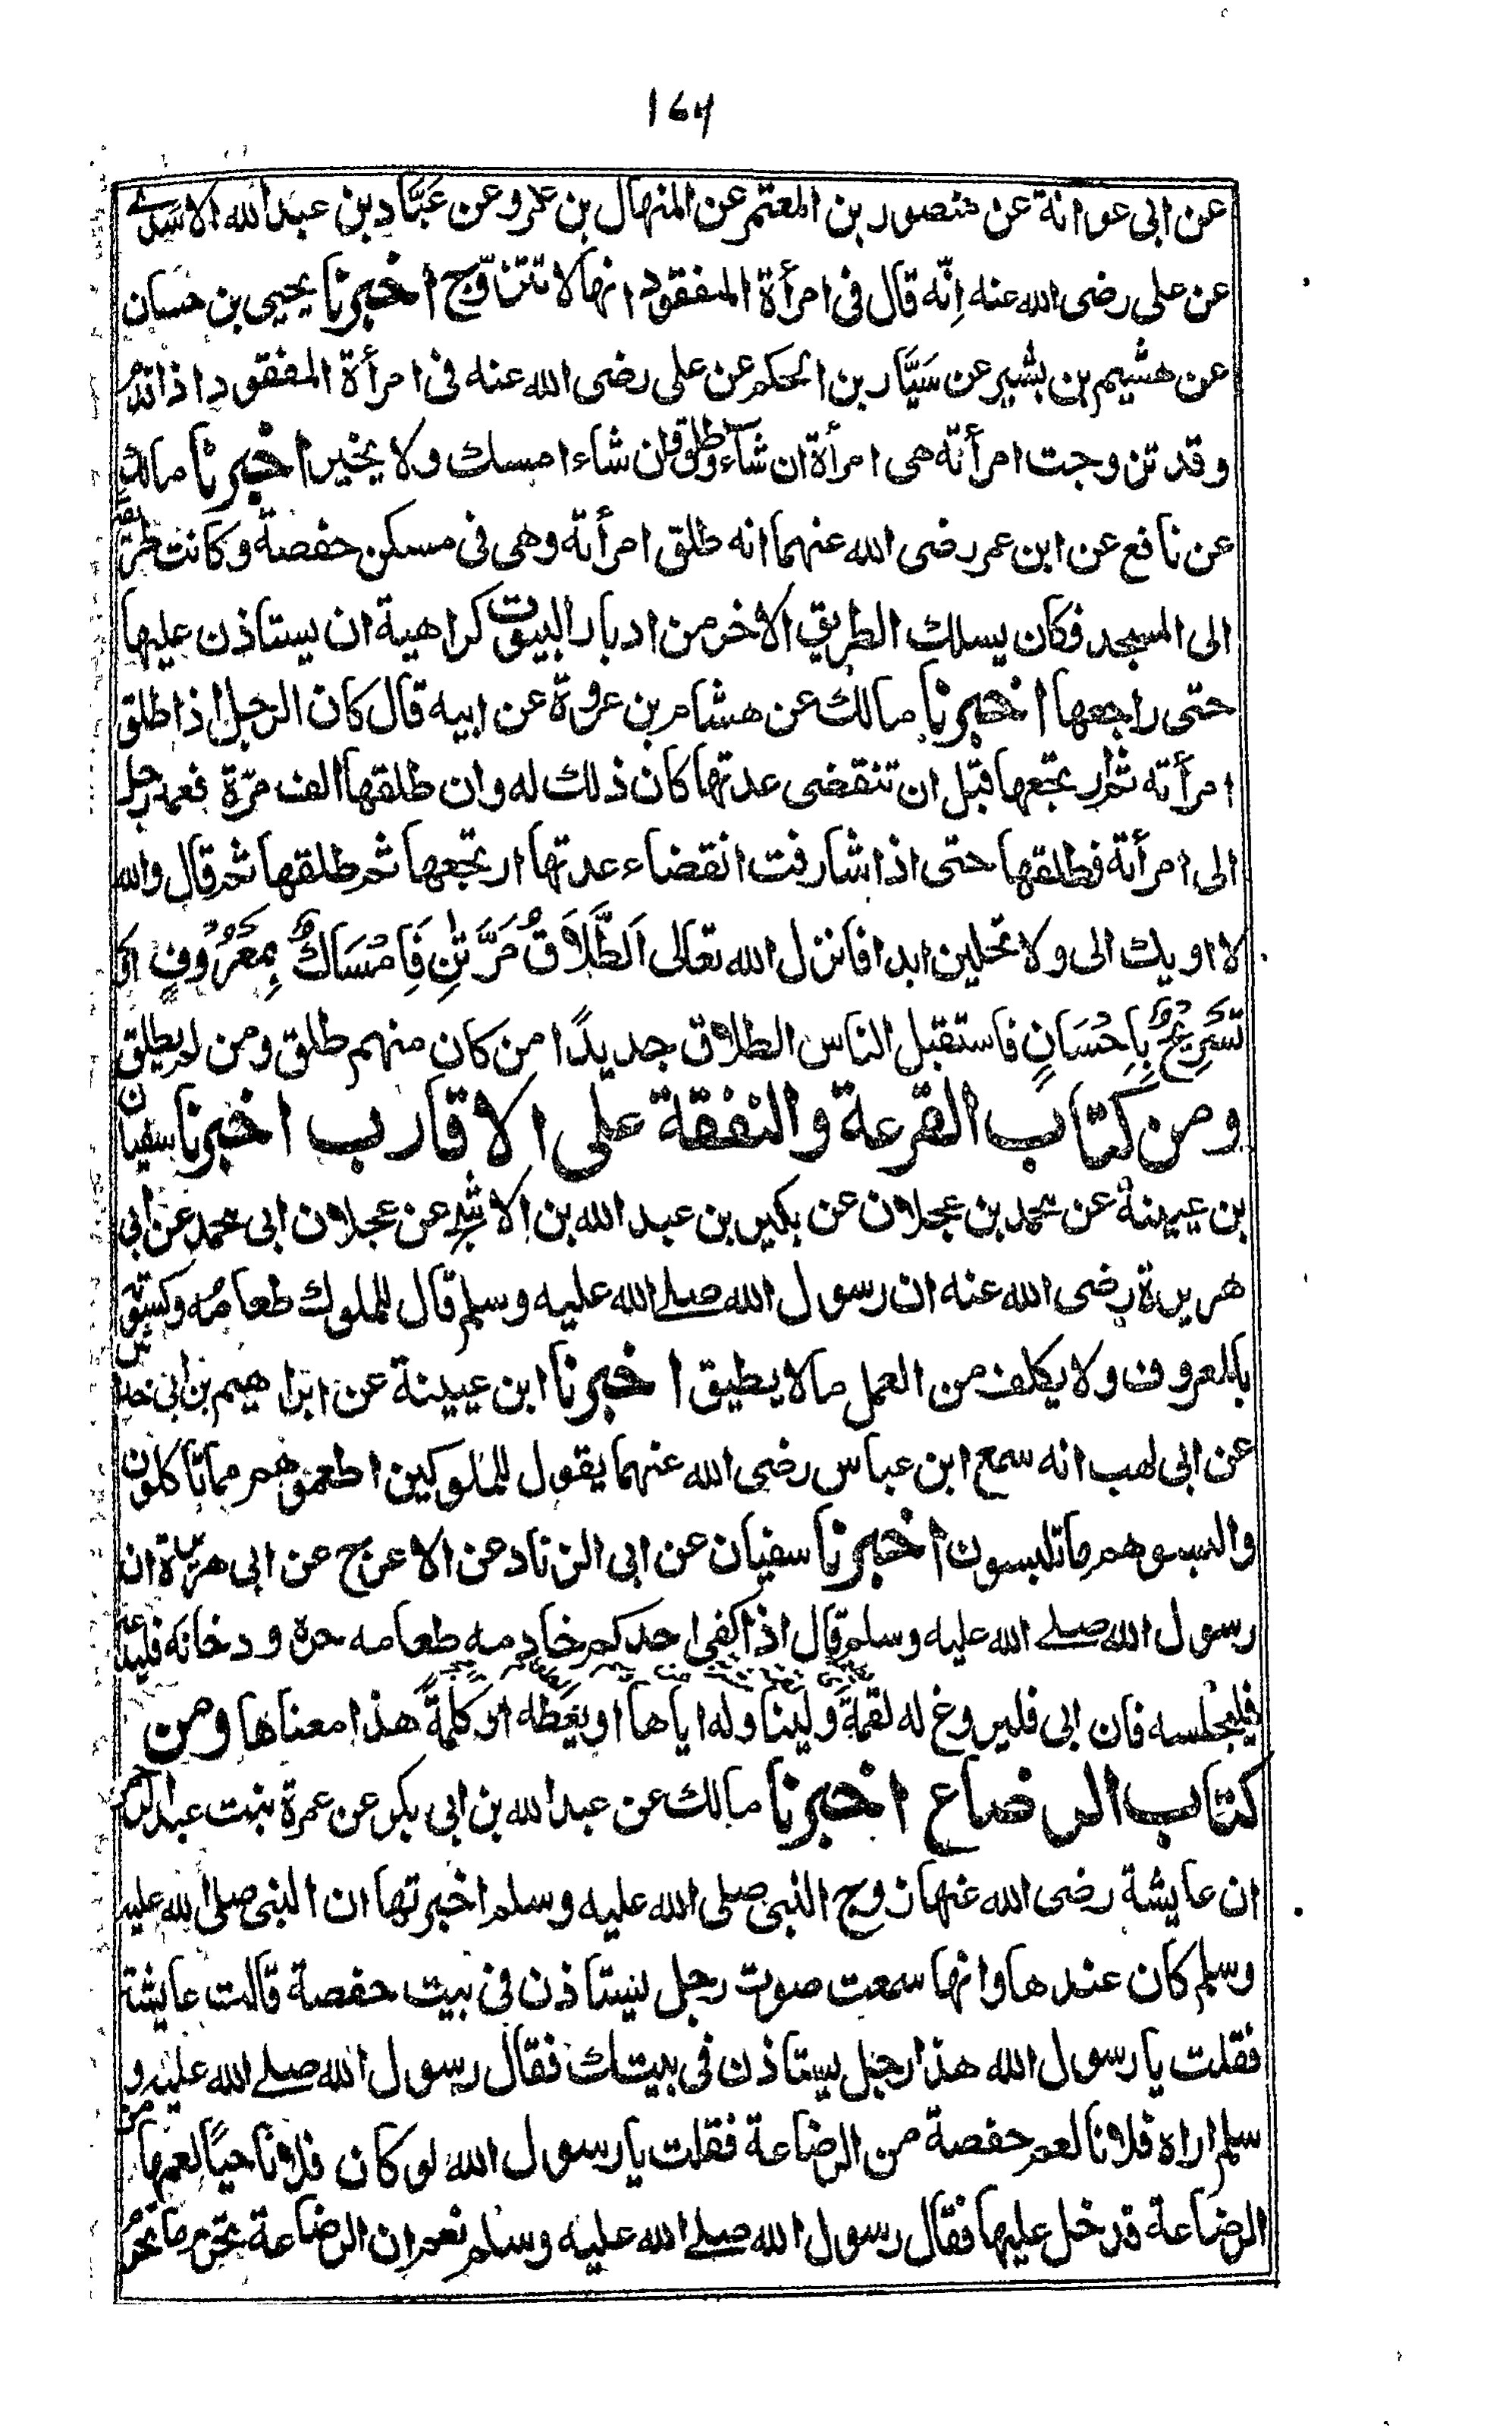 164
عن ابى عوانة عن منصور بن المعتمر عن المنهال بن عمرو عن عَبَّاد بن عبد الله الاسدے
عن على رضى الله عنه اِنّه قال فى امرأة المفقود انها لا تتزوّج اخبرنا يحيى بن حسان
عن هشيم بن بشير عن سَيَّار بن الحكم عن على رضى الله عنه فى امرأة المفقود اذا قدم
وقد تزوجت امرأته هى امرأة ان شاء طلق وان شاء امسك ولا يخير اخبرنا مالك
عن نافع عن ابن عمر رضى الله عنهما انه طلق امرأته وهى فى مسكن حفصة وكانت طريقه
الى المسجد فكان يسلك الطريق الاخر من ادبار البيوت كراهية ان يستاذن عليها
حتى راجعها اخبرنا مالك عن هشام بن عروة عن ابيه قال كان الرجل اذا طلق
امرأته ثم ارتجعها قبل ان تنقضى عدتها كان ذلك له وان طلقها الف مرّة فعمد رجل
الى امرأته فطلقها حتى اذا شارفت انقضاء عدتها ارتجعها ثم طلقها ثم قال والله
لا اويك الى ولا تحلين ابدا فانزل الله تعالى اَلطَّلَاقُ مَرَّتٰنِ فَاِمْسَاكٌ بِمَعْرُوْفٍ اَوْ
تَسْرِيْحٌ بِاِحْسَانٍ فاستقبل الناس الطلاق جديدًا من كان منهم طلق ومن لم يطلق
ومن كتاب القرعة والنفقة على الاقارب اخبرنا سفيان
بن عيينة عن محمد بن عجلان عن بكير بن عبد الله بن الاشج عن عجلان ابى محمد عن ابى
هريرة رضى الله عنه ان رسول الله صلے الله عليه وسلم قال للملوك طعامُه وكسوته
بالمعروف ولا يكلف من العمل مالا يطيق اخبرنا ابن عيينة عن ابراهيم بن ابى خداش
عن ابى لهب انه سمع ابن عباس رضى الله عنهما يقول للملوكين اطعموهم مما تاكلون
والبسوهم ما تلبسون اخبرنا سفيان عن ابى الزناد عن الاعرج عن ابى هريرة ان
رسول الله صلے الله عليه وسلم قال اذا كفى احدكم خادمه طعامه حره ودخانه فليدعه
فليجلسه فان ابى فليروغ له لقمة ولينا وله اياها او يعطه اوكلمةً هذا معناها ومن
كتاب الرضاع اخبرنا مالك عن عبد الله بن ابى بكر عن عمرة بنت عبد الرحمن
ان عايشة رضى الله عنها زوج النبى صلى الله عليه وسلم اخبرتها ان النبى صلى الله عليه
وسلم كان عندها وانها سمعت صوت رجل يستاذن فى بيت حفصة قالت عايشة
فقلت يا رسول الله هذا رجل يستاذن فى بيتك فقال رسول الله صلے الله عليه و
سلم اراه فلانا لعم حفصة من الرضاعة فقلت يا رسول الله لو كان فلانا حيًا لعمها من
الرضاعة قد خل عليها فقال رسول الله صلے الله عليه وسلم نعم ان الرضاعة تحرم ما تحرم